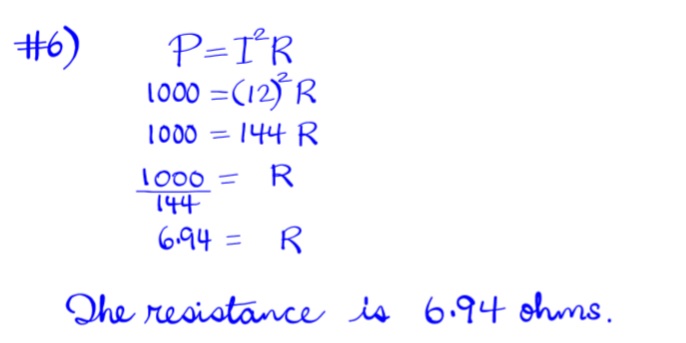 #6) P=I²R
1000 =(12)² R
1000 = 144 R
1000/144 = R
6.94 = R
The resistance is 6.94 ohms.